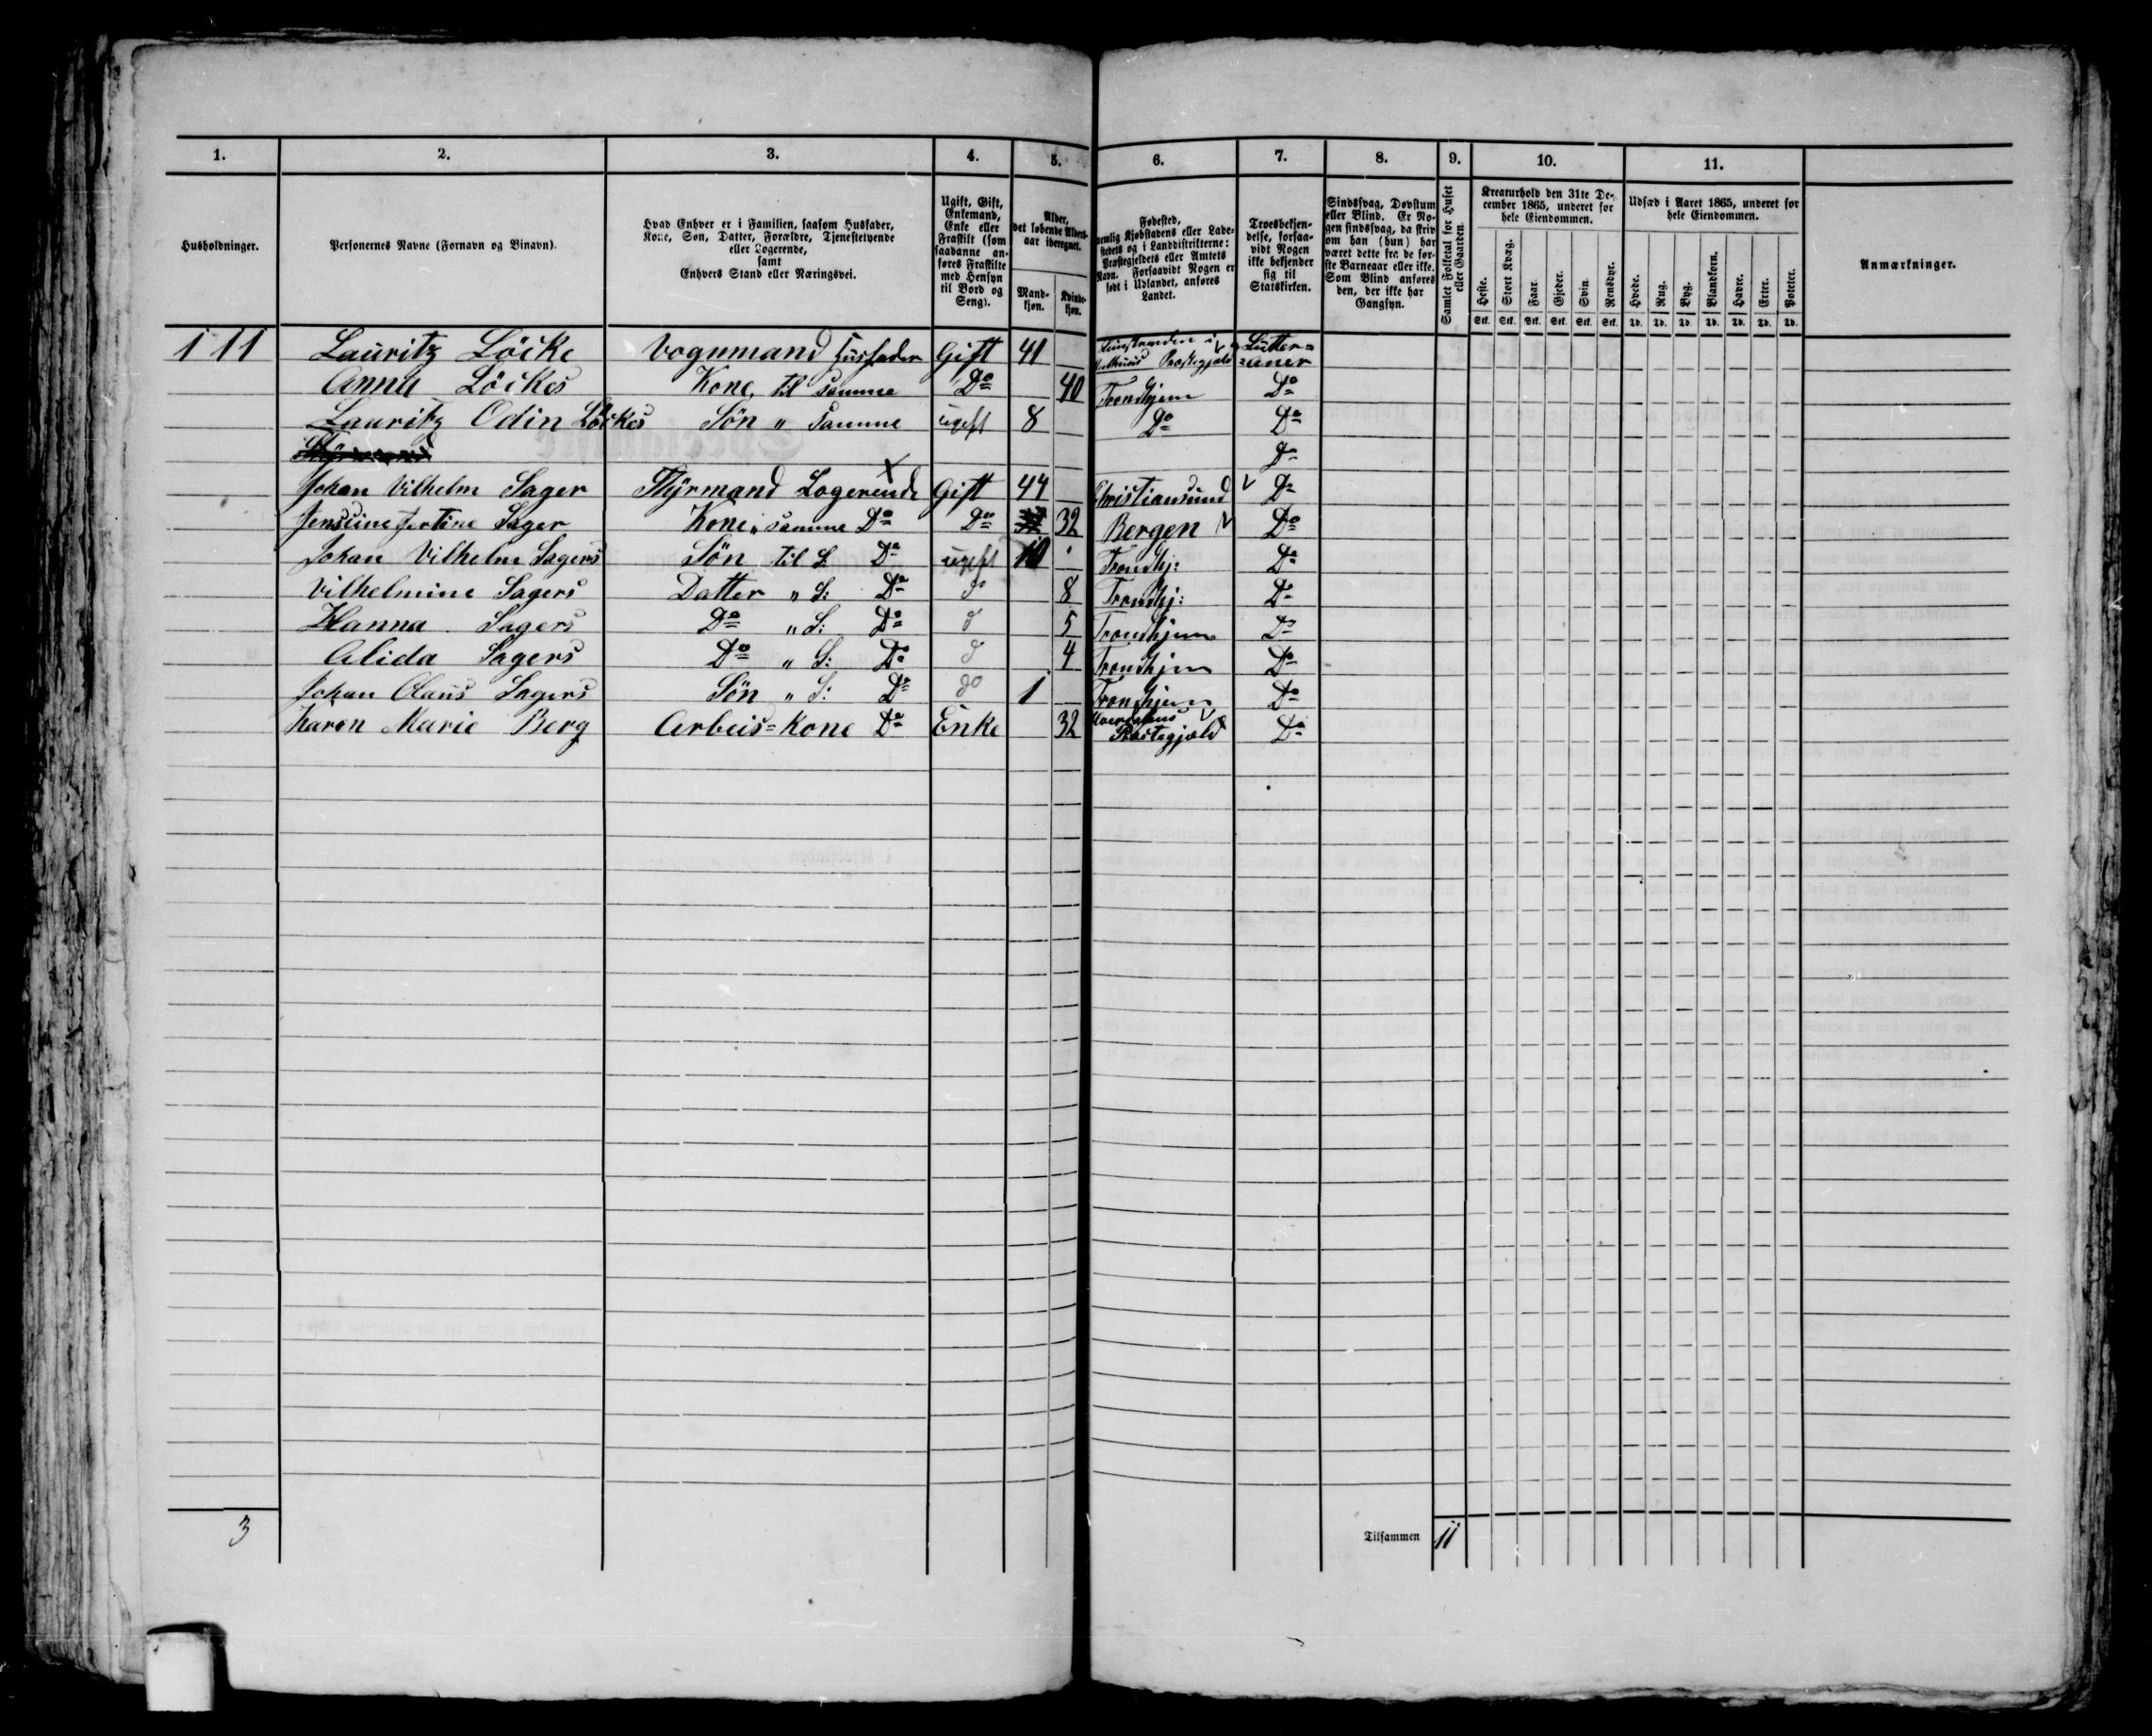 1. 2. 3. 4. 5. 6. 7. 8. 9. 10. 11.
Husholdninger.
Personernes Navne (Fornavn og Binavn).
Hvad Enhver er i Familien, saasom Husfader,
Kone, Søn, Datter, Forældre, Tjenestetyende
eller Logerende,
samt
Enhvers Stand eller Næringsvei.
Ugift, Gift,
Enkemand,
Enke eller
Fraskilt (som
saadanne an-
føres Fraskilte
med Hensyn
til Bord og
Seng).
Alder,
det løbende Alders-
aar iberegnet.
Mand-
kjøn.
Kvinde-
kjøn.
Fødested,
nemlig Kjøbstadens eller Lade-
stedets og i Landdistrikterne:
Præstegjeldets eller Amtets
Navn. Forsaavidt Nogen er
født i Udlandet, anføres
Landet.
Troesbekjen-
delse, forsaa-
vidt Nogen
ikke bekjender
sig til
Statskirken.
Sindssvag, Døvstum
eller Blind. Er No-
gen sindssvag, da skriv
om han (hun) har
været dette fra de før-
ste Barneaar eller ikke.
Som Blind anføres
den, der ikke har
Gangsyn.
Samlet Folketal for Huset
eller Gaarden.
Kreaturhold den 31te De-
cember 1865, underet for
hele Eiendommen.
Heste. Stort Kvæg. Faar. Gjeder. Svin. Rensdyr.
Stk. Stk. Stk. Stk. Stk. Stk.
Udsæd i Aaret 1865, underet for
hele Eiendommen.
Hvede. Rug. Byg. Blandkorn. Havre. Erter. Poteter.
Td. Td. Td. Td. Td. Td. Td.
Anmærkninger.
111 Lauritz Löcke Vognmand Husfader Gift 41 i Præstegjæld Lutter=
=aner
Anna Löckes Kone til Samme Do 40 Trondhjem Do
Lauritz Odin Löckes Søn " Samme ugift 8 Do Do
Do
Johan Vilhelm Sager Styrmand Logerende Gift 44 Christiansund Do
Jensine Sager Kone " samme Do Do 32 Bergen Do
Johan Vilhelm Sagers Søn til S. Do ugift 10 Trondhj: Do
Vilhelmine Sagers Datter " S: Do do 8 Trondhj: Do
Hanna Sagers Do " S: Do d 5 Trondhjem Do
Alida Sagers Do " S: Do d 4 Trondhjem Do
Johan Olaus Sagers Søn " S: Do do 1 Trondhjem Do
Karen Marie Berg Arbeis=Kone Do Enke 32 Præstegjæld Do
3
Tilsammen 11